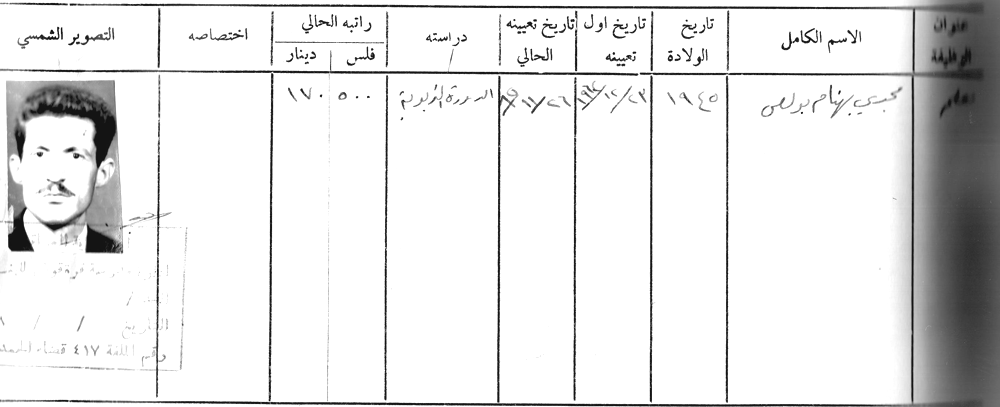 عنوان الوظيفة
الاسم الكامل
تاريخ الولادة
تاريخ اول تعيينه
تاريخ تعيينه الحالي
دراسته
راتبه الحالي
فلس
دينار
اختصاصه
التصوير الشمسي
معلم
مجدي بهنام بولص
١٩٤٥
٢٣/١٢/
٢٦/١١/
الدورة التربوية
٥٠٠
١٧٠
التاريخ / /
رقم الملفة ٤١٧ قضاء الحمد